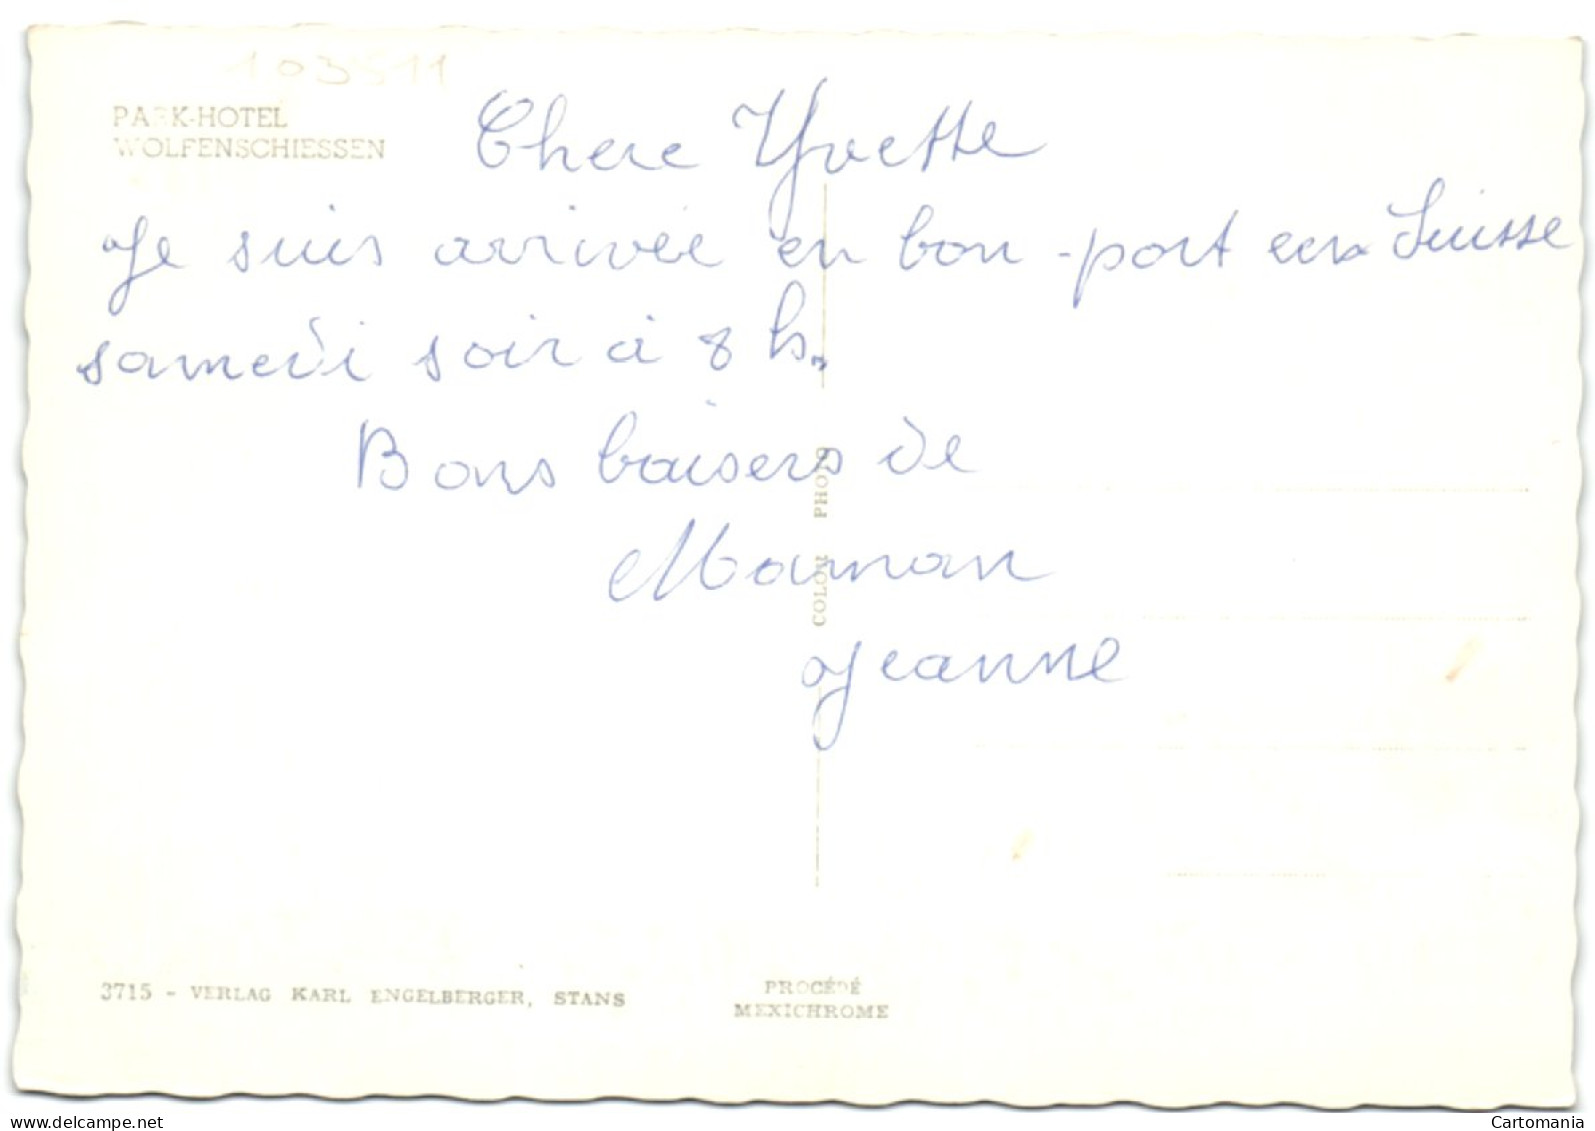 103511
PARK-HOTEL
WOLFENSCHIESSEN
Chere Yvette
Je suis arrivée en bon-port en Suisse
samedi soir à 8 h.
Bons baisers de
Maman
Jeanne
COLOR PHOTO
3715 - VERLAG KARL ENGELBERGER, STANS
PROCÉDÉ
MEXICHROME
www.delcampe.net
Cartomania